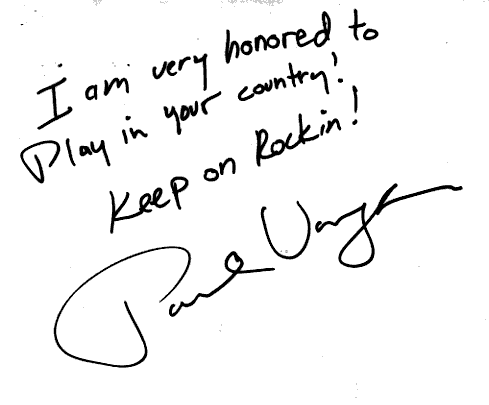 I am very honored to
Play in your country!
Keep on Rockin!
Paul